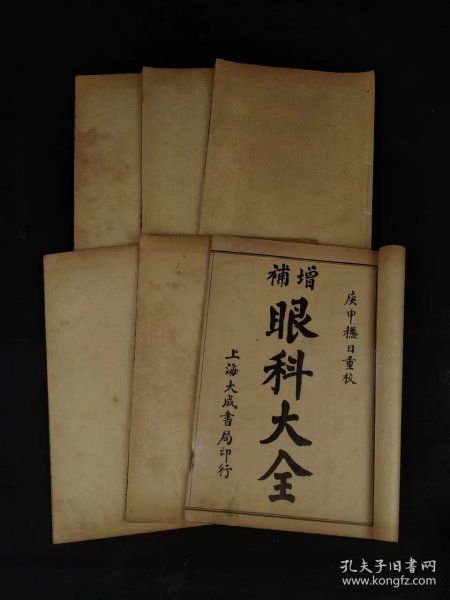 庚申穐日重校
增補
眼科大全
上海大成書局印行
孔夫子旧书网
www.kongfz.com